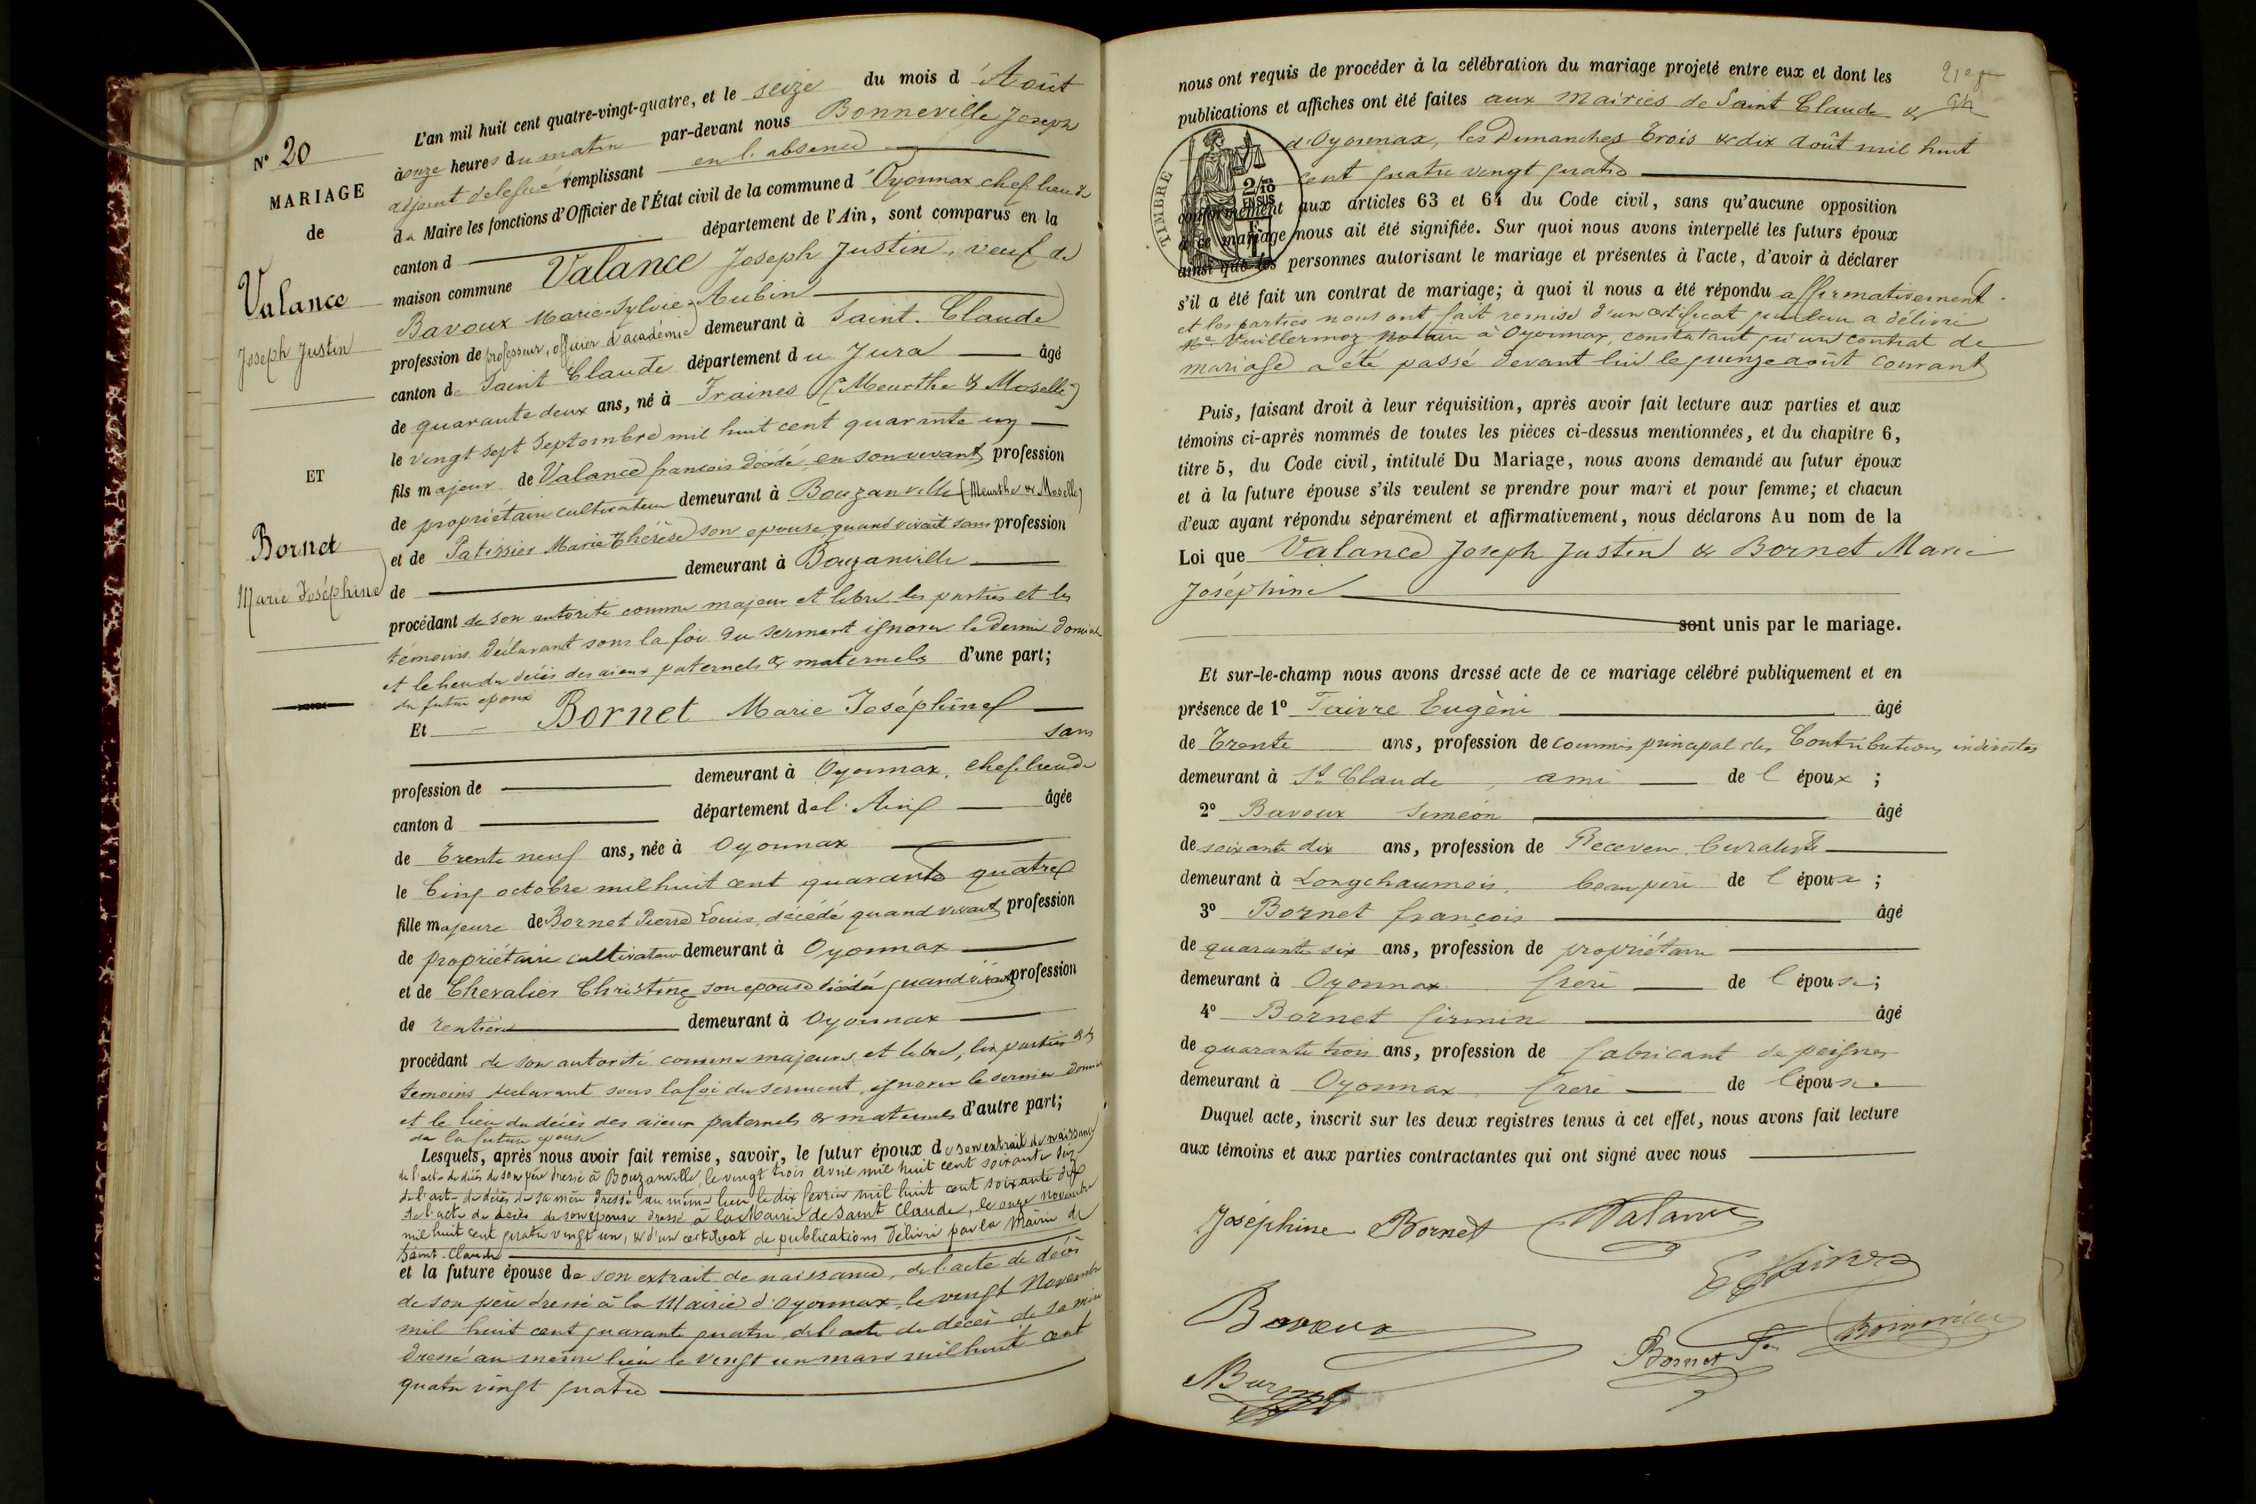 N° 20
MARIAGE
de
Valance
Joseph Justin
ET
Bornet
Marie Joséphine
L'an mil huit cent quatre-vingt-quatre, et le seize du mois d'Août
à onze heures du matin par-devant nous Bonneville Joseph
adjoint délégué remplissant en l'absence
du Maire les fonctions d'Officier de l'État civil de la commune d'Oyonnax chef lieu de
canton d département de l'Ain, sont comparus en la
maison commune Valance Joseph Justin, veuf de
Bavoux Marie Sylvie Aubin
profession de professeur, officier d'académie demeurant à Saint-Claude
canton de Saint Claude département du Jura âgé
de quarante deux ans, né à Fraines (Meurthe & Moselle)
le vingt sept Septembre mil huit cent quarante un
fils majeur de Valance françois décédé en son vivant profession
de propriétaire cultivateur demeurant à Bouzanville (Meurthe & Moselle)
et de Patissier Marie Thérèse son épouse quand vivait sans profession
de demeurant à Bouzanville
procédant de son autorité comme majeur et libre les parties et les
témoins déclarant sous la foi du serment ignorer le dernier domicile
et le lieu du décès des aïeux paternels & maternels d'une part;
du futur époux
Et Bornet Marie Joséphine
sans
profession de demeurant à Oyonnax, chef lieu de
canton d département de l'Ain âgée
de Trente neuf ans, née à Oyonnax
le Cinq octobre mil huit cent quarante quatre
fille majeure de Bornet Pierre Louis décédé quand vivait profession
de propriétaire cultivateur demeurant à Oyonnax
et de Chevalier Christine son épouse décédée quand vivait profession
de rentière demeurant à Oyonnax
procédant de son autorité comme majeure et libre, les parties & les
témoins déclarant sous la foi du serment ignorer le dernier domicile
et le lieu du décès des aïeux paternels & maternels d'autre part;
de la future épouse
Lesquels, après nous avoir fait remise, savoir, le futur époux de son extrait de naissance
de l'acte de décès de son père dressé à Bouzanville, le vingt trois avril mil huit cent soixante dix
de l'acte de décès de sa mère dressé au même lieu le dix février mil huit cent soixante dix
de l'acte de décès de son épouse dressé à la Mairie de Saint Claude, le onze novembre
mil huit cent quatre vingt un, & d'un certificat de publications délivré par la Mairie de
Saint-Claude
et la future épouse de son extrait de naissance, de l'acte de décès
de son père dressé à la Mairie d'Oyonnax, le vingt Novembre
mil huit cent quarante quatre, de l'acte de décès de sa mère
dressé au même lieu le vingt un mars mil huit cent
quatre vingt quatre
nous ont requis de procéder à la célébration du mariage projeté entre eux et dont les
publications et affiches ont été faites aux Mairies de Saint Claude &
d'Oyonnax, les Dimanches Trois & dix Août mil huit
cent quatre vingt quatre
TIMBRE
2/10 EN SUS
conformément aux articles 63 et 64 du Code civil, sans qu'aucune opposition
à ce mariage nous ait été signifiée. Sur quoi nous avons interpellé les futurs époux
ainsi que les personnes autorisant le mariage et présentes à l'acte, d'avoir à déclarer
s'il a été fait un contrat de mariage; à quoi il nous a été répondu affirmativement.
et les parties nous ont fait remise d'un certificat que leur a délivré
Me Vuillermoz Notaire à Oyonnax, constatant qu'un contrat de
mariage a été passé devant lui le quinze août courant
Puis, faisant droit à leur réquisition, après avoir fait lecture aux parties et aux
témoins ci-après nommés de toutes les pièces ci-dessus mentionnées, et du chapitre 6,
titre 5, du Code civil, intitulé Du Mariage, nous avons demandé au futur époux
et à la future épouse s'ils veulent se prendre pour mari et pour femme; et chacun
d'eux ayant répondu séparément et affirmativement, nous déclarons Au nom de la
Loi que Valance Joseph Justin & Bornet Marie
Joséphine
sont unis par le mariage.
Et sur-le-champ nous avons dressé acte de ce mariage célébré publiquement et en
présence de 1° Faivre Eugène âgé
de Trente ans, profession de commis principal des Contributions indirectes
demeurant à St Claude, ami de l'époux;
2° Bavoux Siméon âgé
de soixante dix ans, profession de Receveur buraliste
demeurant à Longchaumois, beau père de l'époux;
3° Bornet françois âgé
de quarante six ans, profession de propriétaire
demeurant à Oyonnax frère de l'épouse;
4° Bornet firmin âgé
de quarante trois ans, profession de fabricant de peignes
demeurant à Oyonnax frère de l'épouse.
Duquel acte, inscrit sur les deux registres tenus à cet effet, nous avons fait lecture
aux témoins et aux parties contractantes qui ont signé avec nous
Joséphine Bornet Valance
E Faivre
Bavoux
Bornet fois Bonneville
Bornet